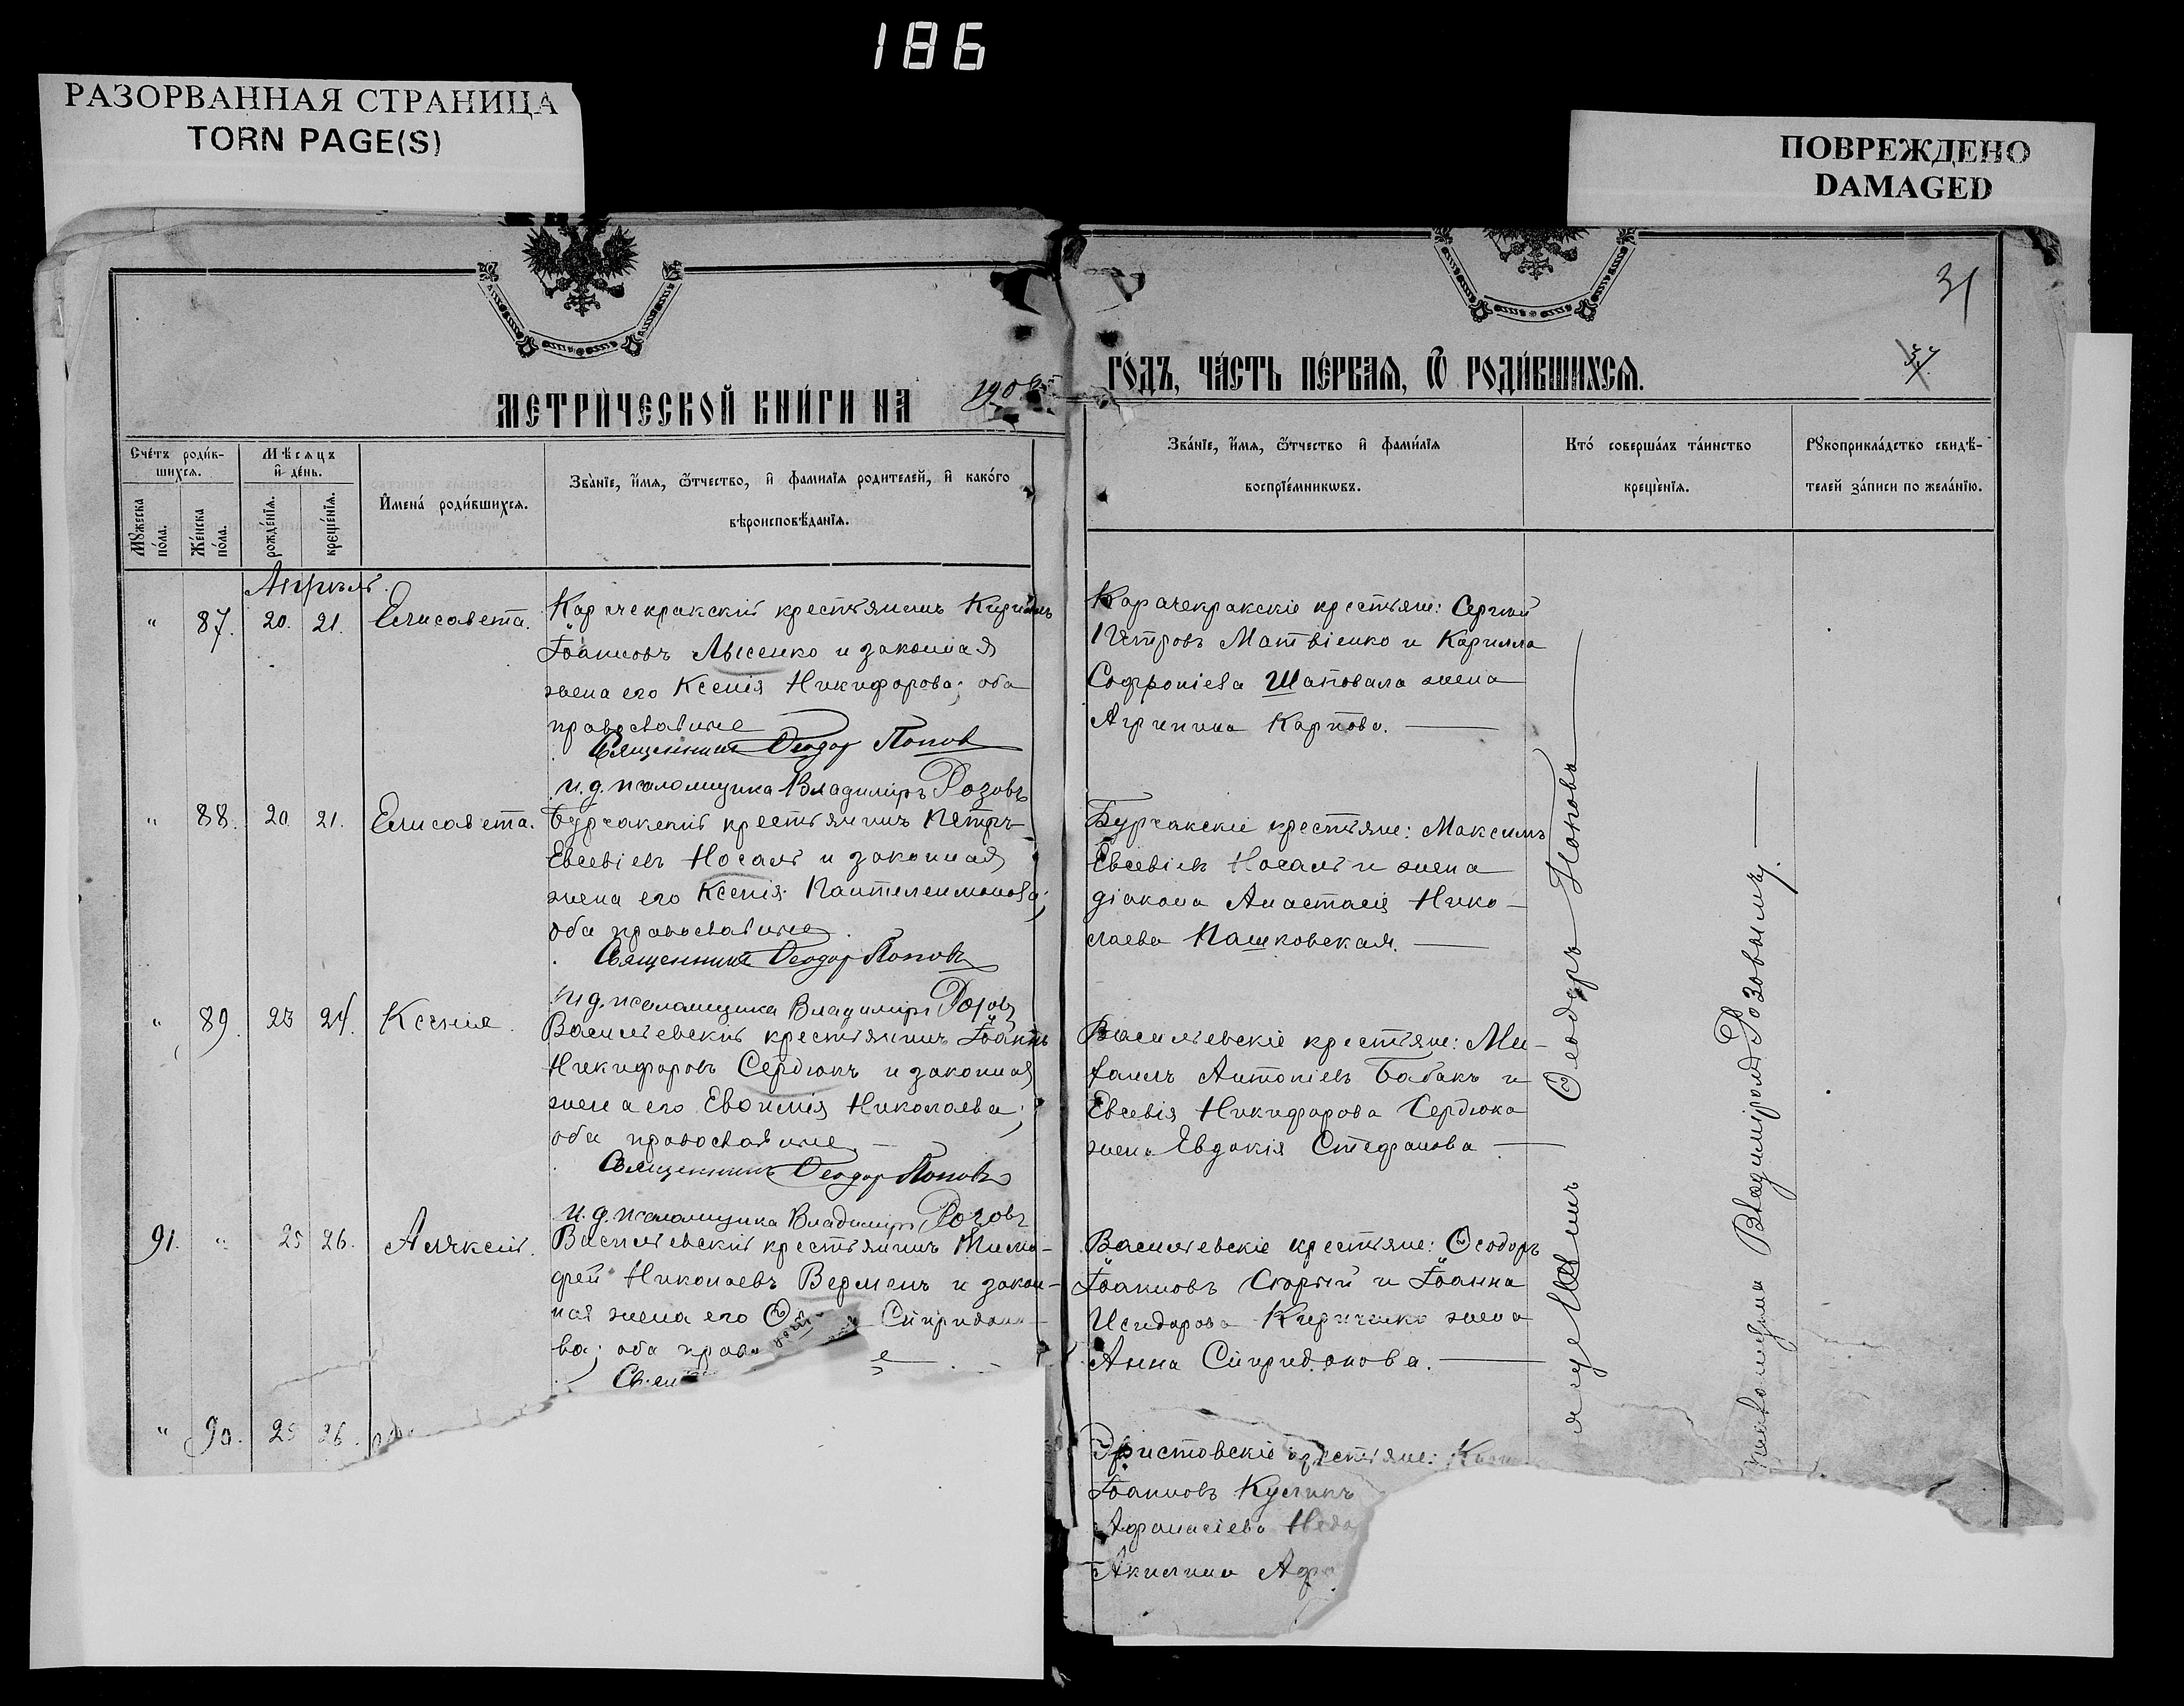 186
РАЗОРВАННАЯ СТРАНИЦА
TORN PAGE(S)
ПОВРЕЖДЕНО
DAMAGED
31
37.
МЕТРИ́ЧЕСКОЙ КНИ́ГИ НА 190
ГО́ДЪ, ЧА́СТЬ ПЕ́РВАѦ, Ѿ РОДИ́ВШИХСѦ.
Сче́тъ роди́в-
шихсѧ.
Мѣ́сѧцъ
и҆ де́нь.
Мꙋ́жеска
по́ла.
Же́нска
по́ла.
рожде́нїѧ.
креще́нїѧ.
И҆мена̀ роди́вшихсѧ.
Зва́нїе, и҆́мѧ, ѻ҆́тчество, и҆ фами́лїѧ роди́телей, и҆ како́го
вѣроисповѣ́данїѧ.
Зва́нїе, и҆́мѧ, ѻ҆́тчество и҆ фами́лїѧ
воспрїе́мникѡвъ.
Кто́ соверша́лъ та́инство
креще́нїѧ.
Рꙋкоприкла́дство свидѣ́-
телей за́писи по жела́нїю.
Апрѣль.
" 87. 20. 21. Елисавета.
Карачекракскій крестьянинъ Кириллъ
Іоанновъ Лысенко и законная
жена его Ксенія Никифорова; оба
православные
Священникъ Ѳеодор Попов
И. д. псаломщика Владиміръ Розовъ
Карачекракскіе крестьяне: Сергій
Петровъ Матвіенко и Карилла
Софроніева Шаповала жена
Агрипина Карпова.
" 88. 20. 21. Елисавета.
Бурчакскій крестьянинъ Петръ
Евсевіевъ Носаль и законная
жена его Ксенія Пантелеимонова;
оба православные.
Священникъ Ѳеодор Поповъ
И. д. псаломщика Владиміръ Розовъ
Бурчакскіе крестьяне: Максимъ
Евсевіевъ Носаль и жена
діакона Анастасія Нико-
лаева Пашковская.
" 89. 23 24. Ксенія.
Васильевскій крестьянинъ Іоаннъ
Никифоровъ Сердюкъ и законная
жена его Евѳимія Николаева;
оба православные
Священникъ Ѳеодор Поповъ
И. д. псаломщика Владиміръ Розовъ
Васильевскіе крестьяне: Ми-
хаилъ Антоніевъ Бабакъ и
Евсевія Никифорова Сердюка
жена Евдокія Стефанова
91. " 25 26. Алексій.
Васильевскій крестьянинъ Тимо-
фей Николаевъ Верменъ и закон-
ная жена его Спиридоно-
ва; оба прав
Свящ
Васильевскіе крестьяне: Ѳеодоръ
Іоанновъ Скорый и Іоанна
Исидорова Кириченко жена
Анна Спиридонова.
" 90. 25 26.
крестьяне:
Іоанновъ
Афанасіева
Акилина Аф
Ѳеодоръ Поповъ
псаломщикъ Владиміромъ Розовымъ.